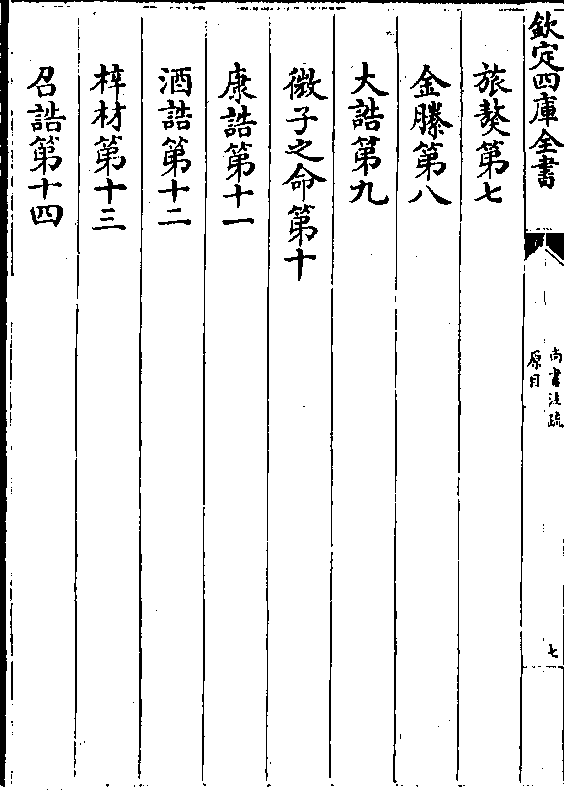 欽定四庫全書
尚書注疏
原目
七
旅獒第七
金縢第八
大誥第九
微子之命第十
康誥第十一
酒誥第十二
梓材第十三
召誥第十四